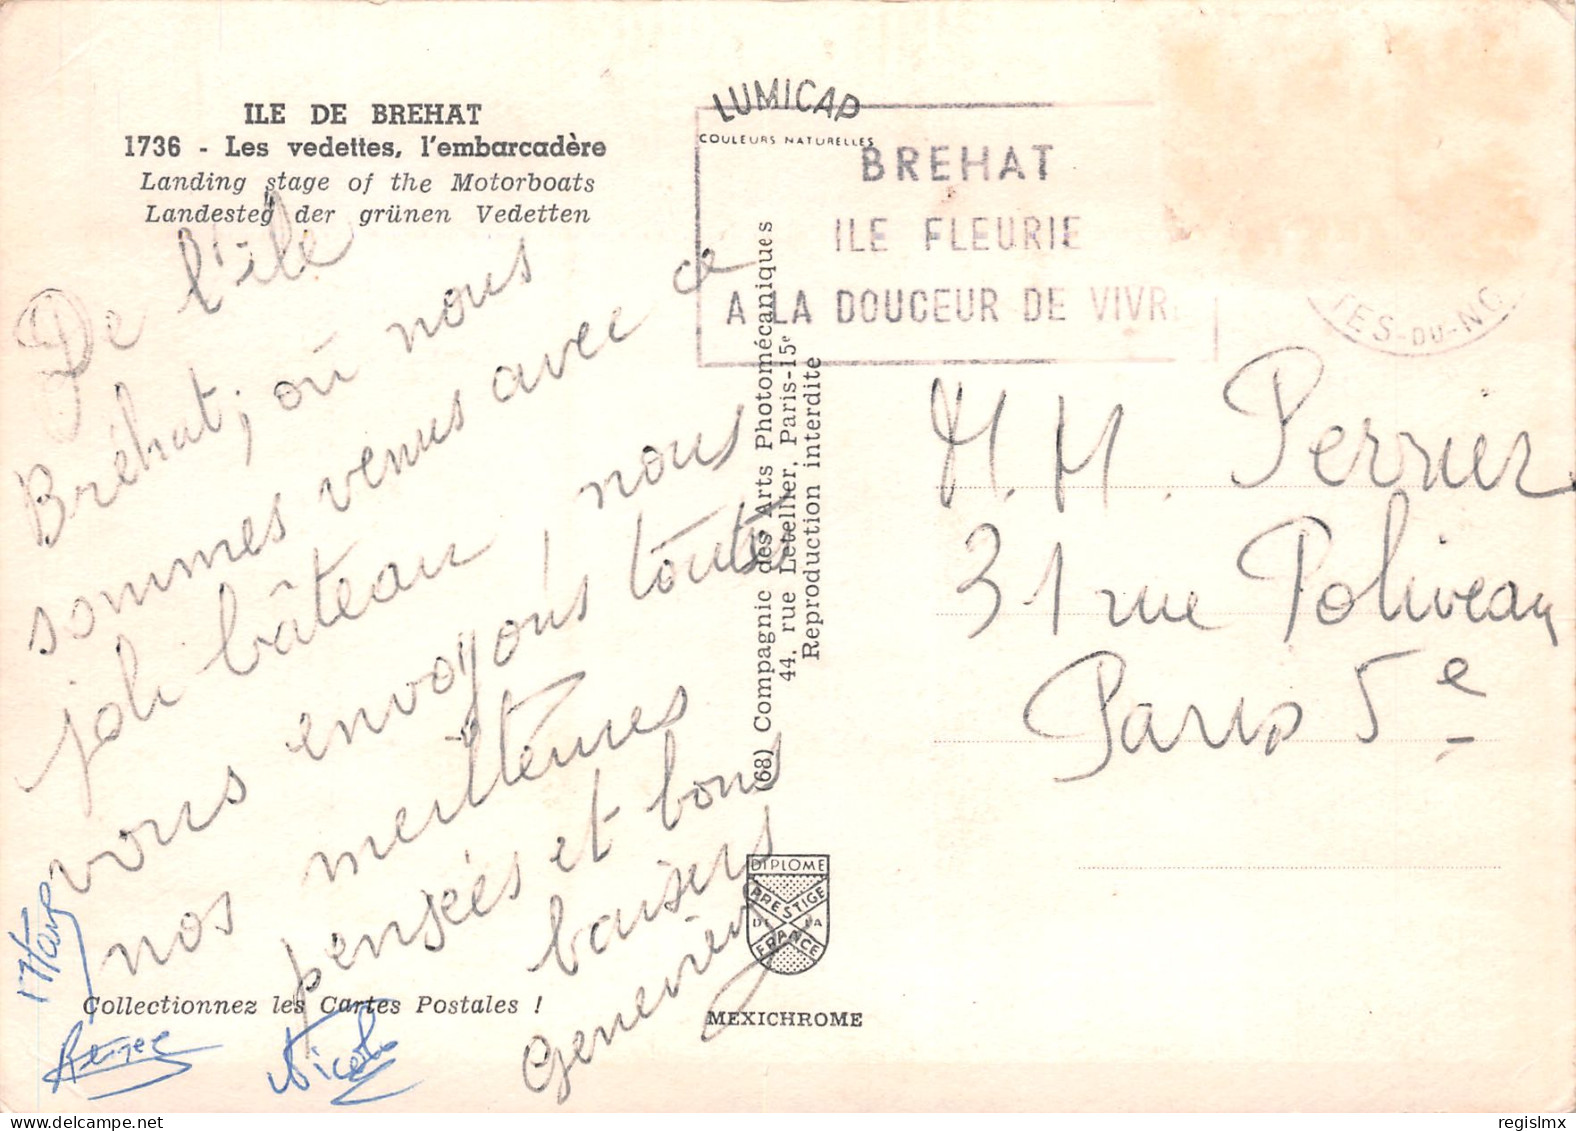 ILE DE BREHAT
1736 - Les vedettes, l'embarcadère
Landing stage of the Motorboats
Landesteg der grünen Vedetten
De l'île
Bréhat, où nous
sommes venus avec ce
joli bâteau, nous
vous envoyons toutes
nos meilleures
pensées et bons
baisers
Geneviève
Nicole
Collectionnez les Cartes Postales !
LUMICAP
COULEURS NATURELLES
BREHAT
ILE FLEURIE
A LA DOUCEUR DE VIVR
TES-DU-NO
(68) Compagnie des Arts Photomécaniques
44, rue Letellier, Paris-15e
Reproduction interdite
DIPLOME
PRESTIGE
DE LA
FRANCE
MEXICHROME
M. M. Perrier
31 rue Poliveau
Paris 5e
regislmx delcampe.net